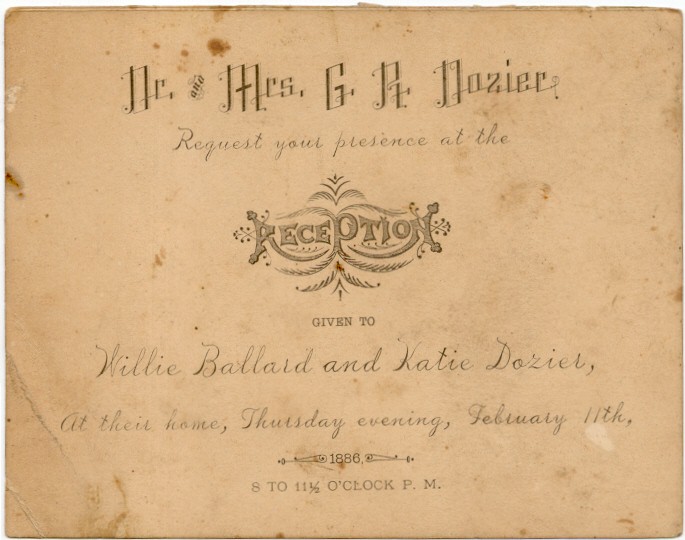 Dr. and Mrs. G. R. Dozier,
Request your presence at the
RECEPTION
GIVEN TO
Willie Ballard and Katie Dozier,
At their home, Thursday evening, February 11th,
1886,
8 TO 11½ O'CLOCK P. M.